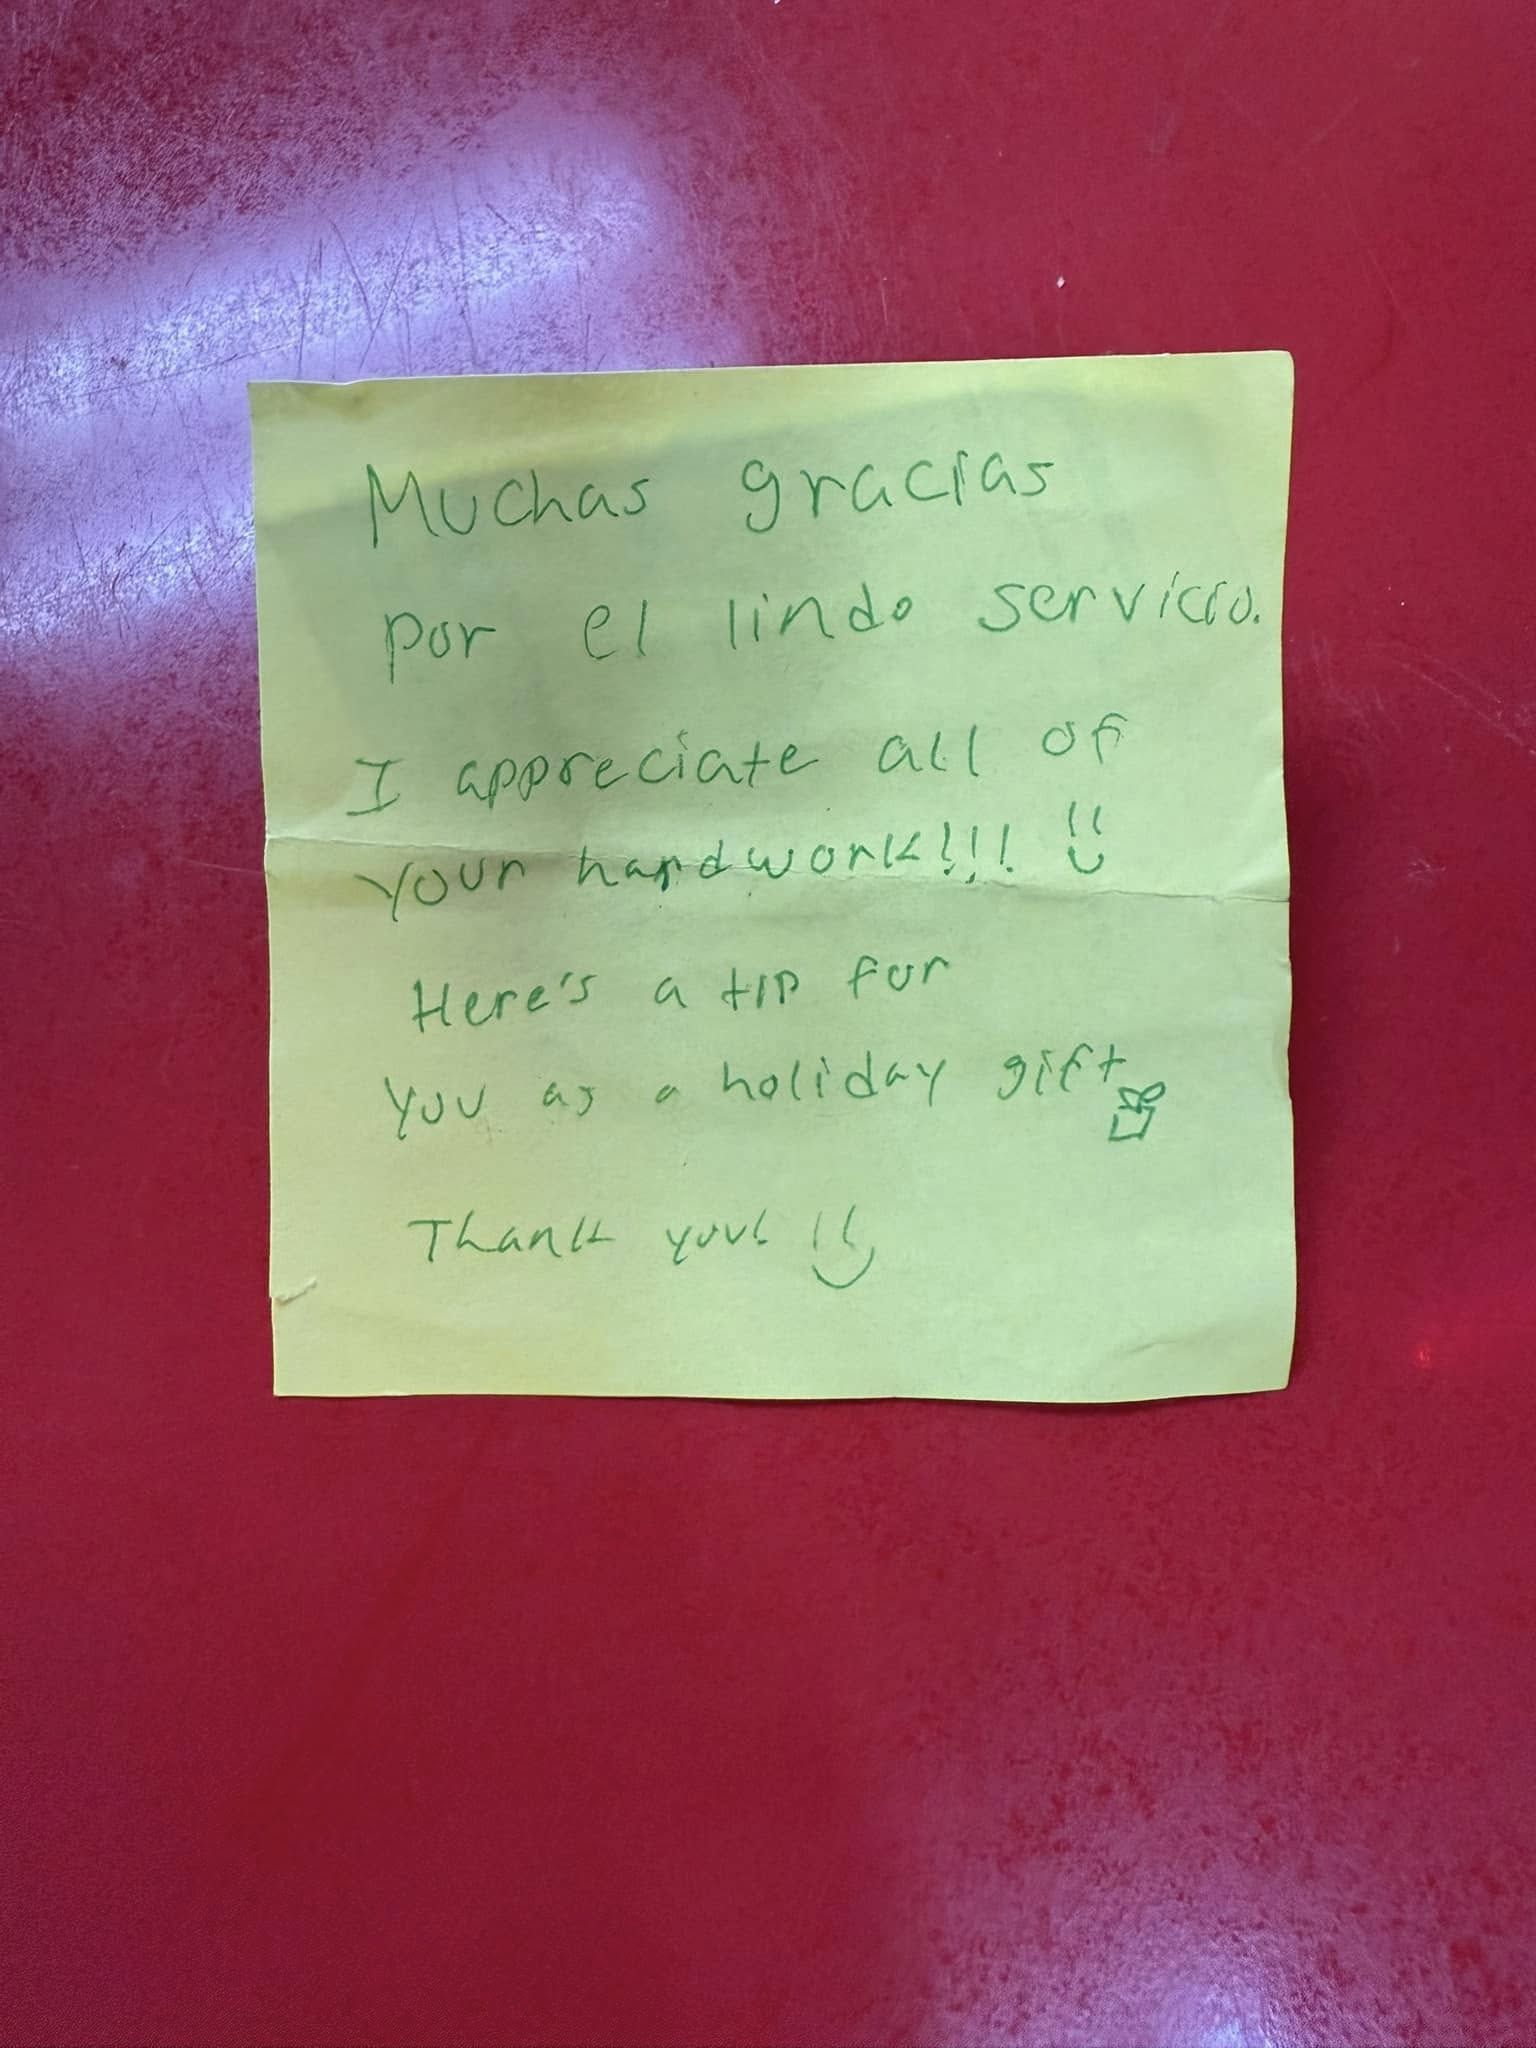 Muchas gracias
por el lindo servicio.
I appreciate all of
your hardwork!!!
Here's a tip for
you as a holiday gift
Thank you!